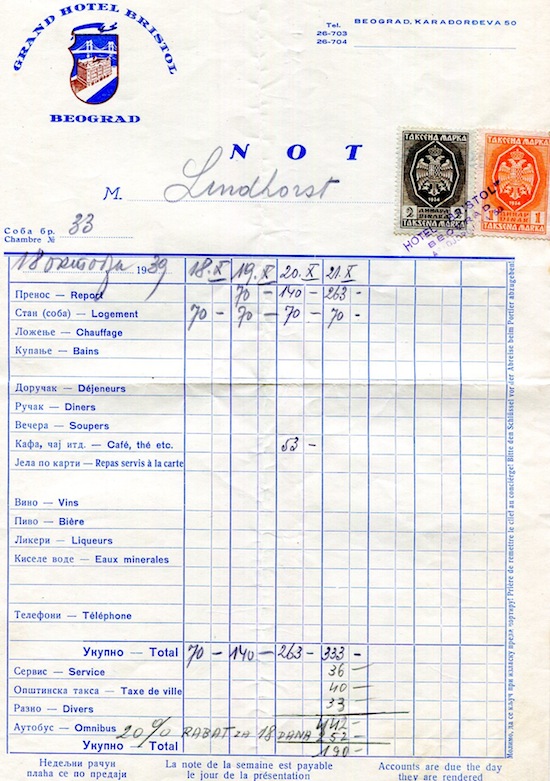 GRAND HOTEL BRISTOL
BEOGRAD
Tel.
26-703
26-704
BEOGRAD, KARAĐORĐEVA 50
NOT
M. Lindhorst
ТАКСЕНА МАРКА
1934
2 ДИНАРА 2
DINARA
TAKSENA MARKA
ТАКСЕНА МАРКА
1934
1 ДИНАР 1
DINAR
TAKSENA MARKA
HOTEL „BRISTOL"
BEOGRAD
Соба бр.
Chambre № 33
18 октобра 1939
18.X 19.X 20.X 21.X
Пренос — Report 70 - 140 - 263 -
Стан (соба) — Logement 70 - 70 - 70 - 70 -
Ложење — Chauffage
Купање — Bains
Доручак — Déjeneurs
Ручак — Diners
Вечера — Soupers
Кафа, чај итд. — Café, thé etc. 53 -
Јела по карти — Repas servis à la carte
Вино — Vins
Пиво — Bière
Ликери — Liqueurs
Киселе воде — Eaux minerales
Телефони — Téléphone
Укупно — Total 70 - 140 - 263 - 333 -
Сервис — Service 36 -
Општинска такса — Taxe de ville 40 -
Разно — Divers 33
Аутобус — Omnibus 442 -
20% RABAT ZA 18 DANA 252 -
Укупно — Total 190 -
Недељни рачун
плаћа се по предаји
La note de la semaine est payable
le jour de la présentation
Accounts are due the day
they are rendered
Молимо, да се кључ при изласку преда портиру! Prière de remettre le clief au conciérge! Bitte den Schlüssel vor der Abreise beim Portier abzugeben!